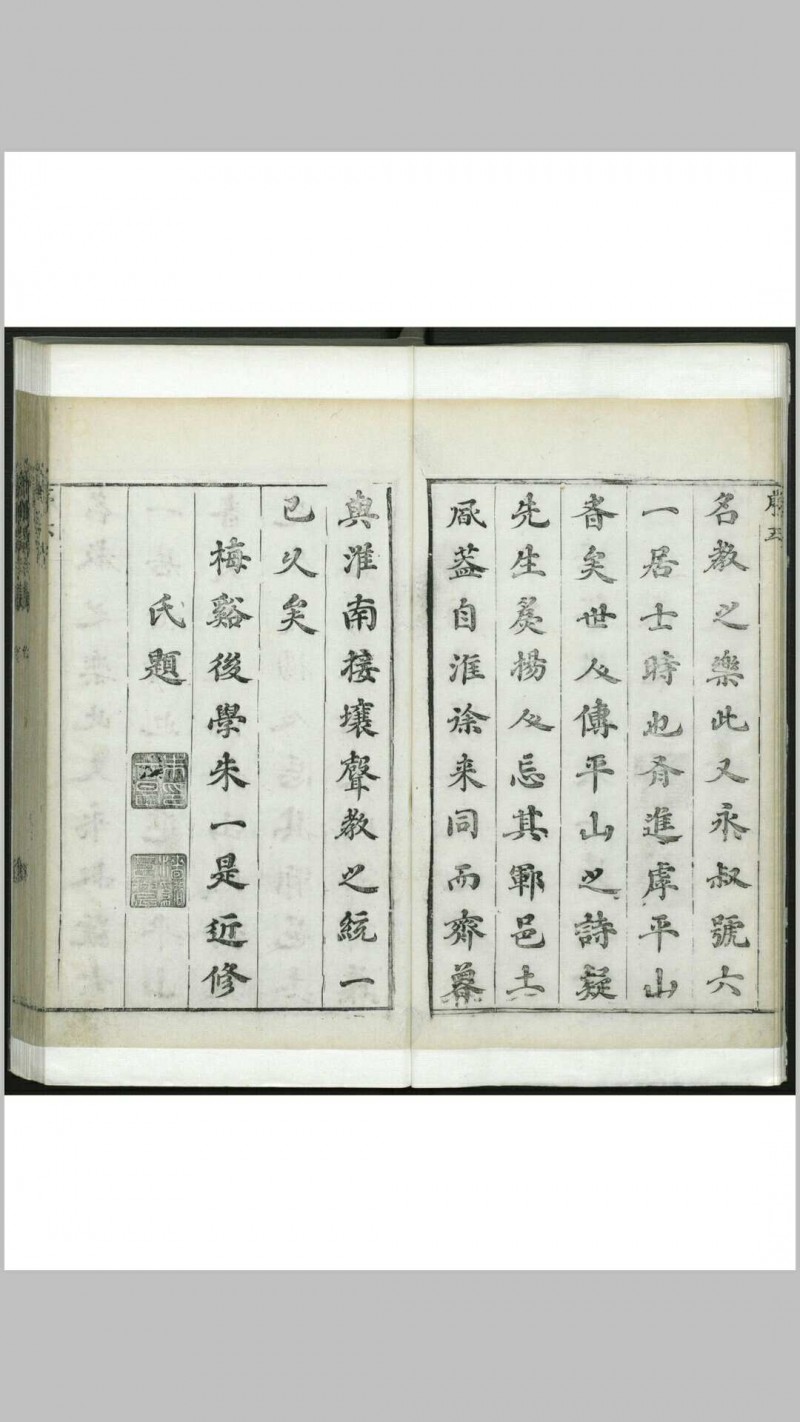 名教之樂此又永叔號六
一居士時也胥進虖平山
者矣世人傳平山之詩疑
先生矣揚人忘其鄆邑土
風葢自淮徐来同而齊魯
與淮南接壤聲教之統一
已久矣
梅谿後學朱一是近修
氏題